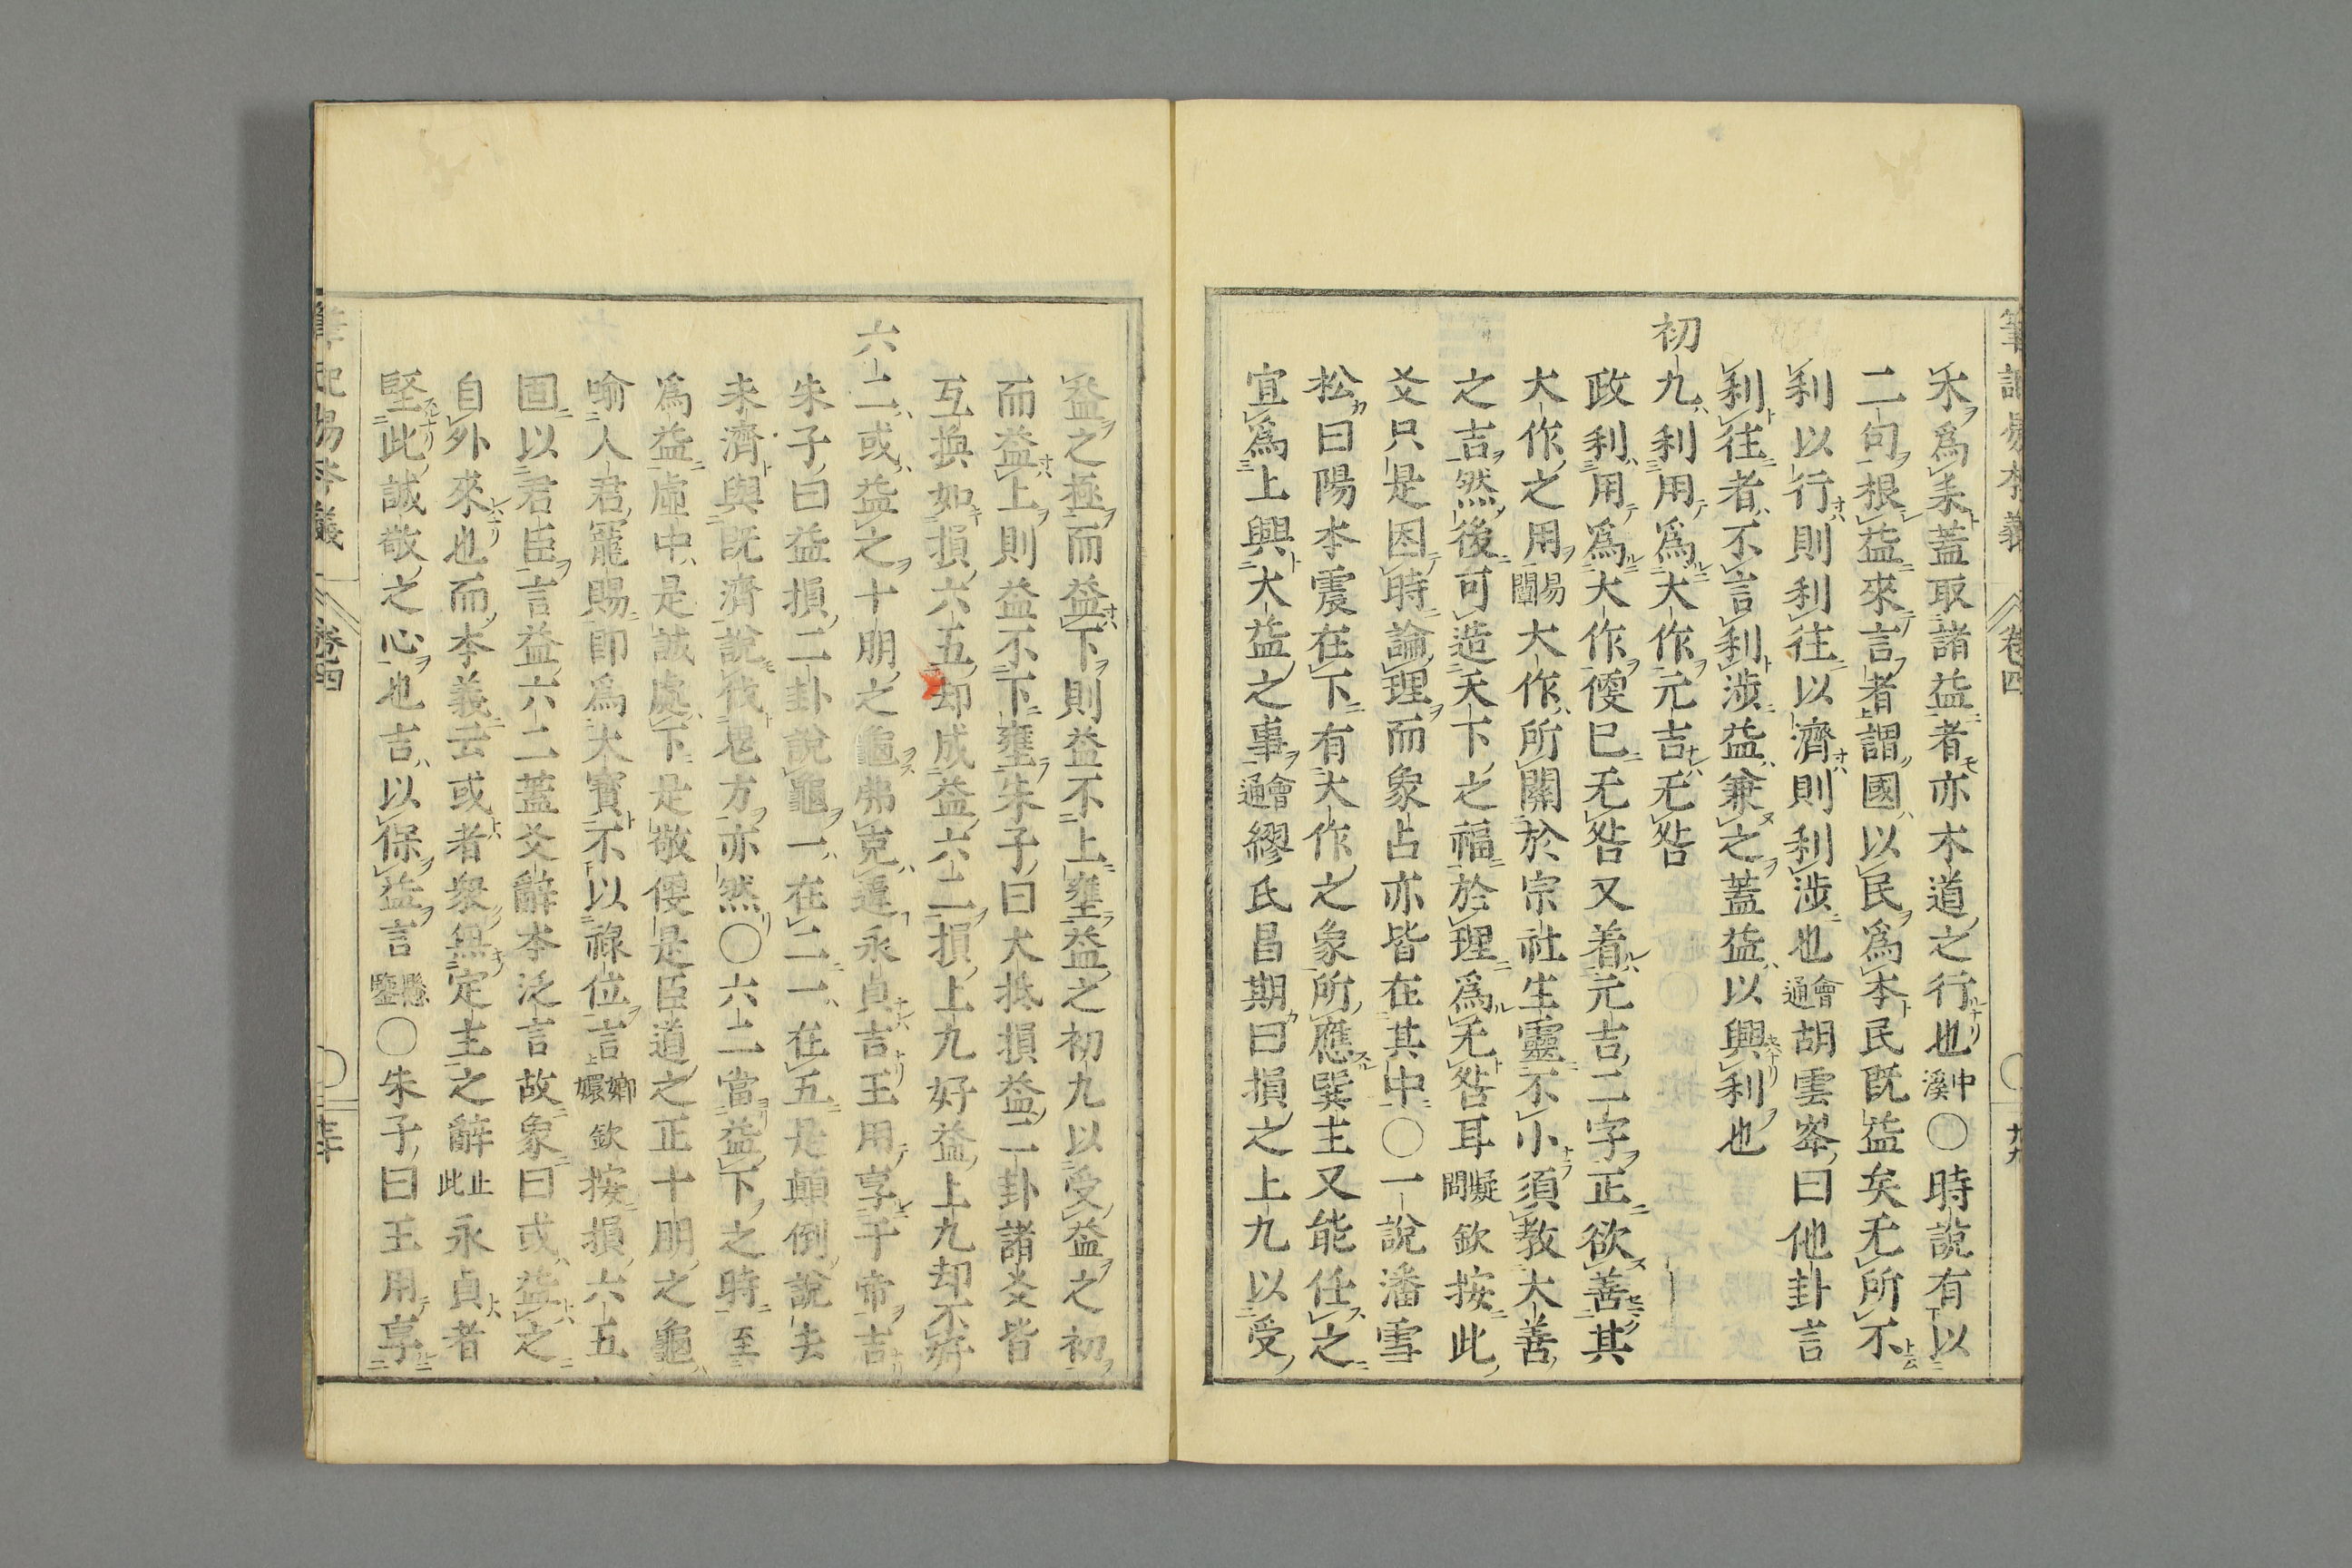 筆記易本義 卷四
木爲耒蓋取諸益者亦木道之行也中溪〇時說有以
二句根益來言者謂國以民爲本民旣益矣无所不
利以行則利往以濟則利涉也會通胡雲峯曰他卦言
利往者不言利涉益兼之蓋益以興利也
初九利用爲大作元吉无咎
政利用爲大作便已无咎又着元吉二字正欲善其
大作之用易闡大作所關於宗社生靈不小須敎大善
之吉然後可造天下之福於理爲无咎耳疑問欽按此
爻只是因時論理而象占亦皆在其中〇一說潘雪
松曰陽本震在下有大作之象所應巽主又能任之
宜爲上興大益之事會通繆氏昌期曰損之上九以受
益之極而益下則益不上壅益之初九以受益之初
而益上則益不下壅朱子曰大抵損益二卦諸爻皆
互換如損六五却成益六二損上九好益上九却不好
六二或益之十朋之龜弗克違永貞吉王用享于帝吉
朱子曰益損二卦說龜一在二一在五是顚倒說去
未濟與旣濟說伐鬼方亦然〇六二當益下之時至
爲益虛中是誠處下是敬便是臣道之正十朋之龜
喻人君寵賜卽爲大寶不以祿位言嫏嬛欽按損六五
固以君臣言益六二蓋爻辭本泛言故象曰或益之
自外來也而本義云或者衆無定主之辭止此永貞者
堅此誠敬之心也吉以保益言懸鑒〇朱子曰王用享
卷四